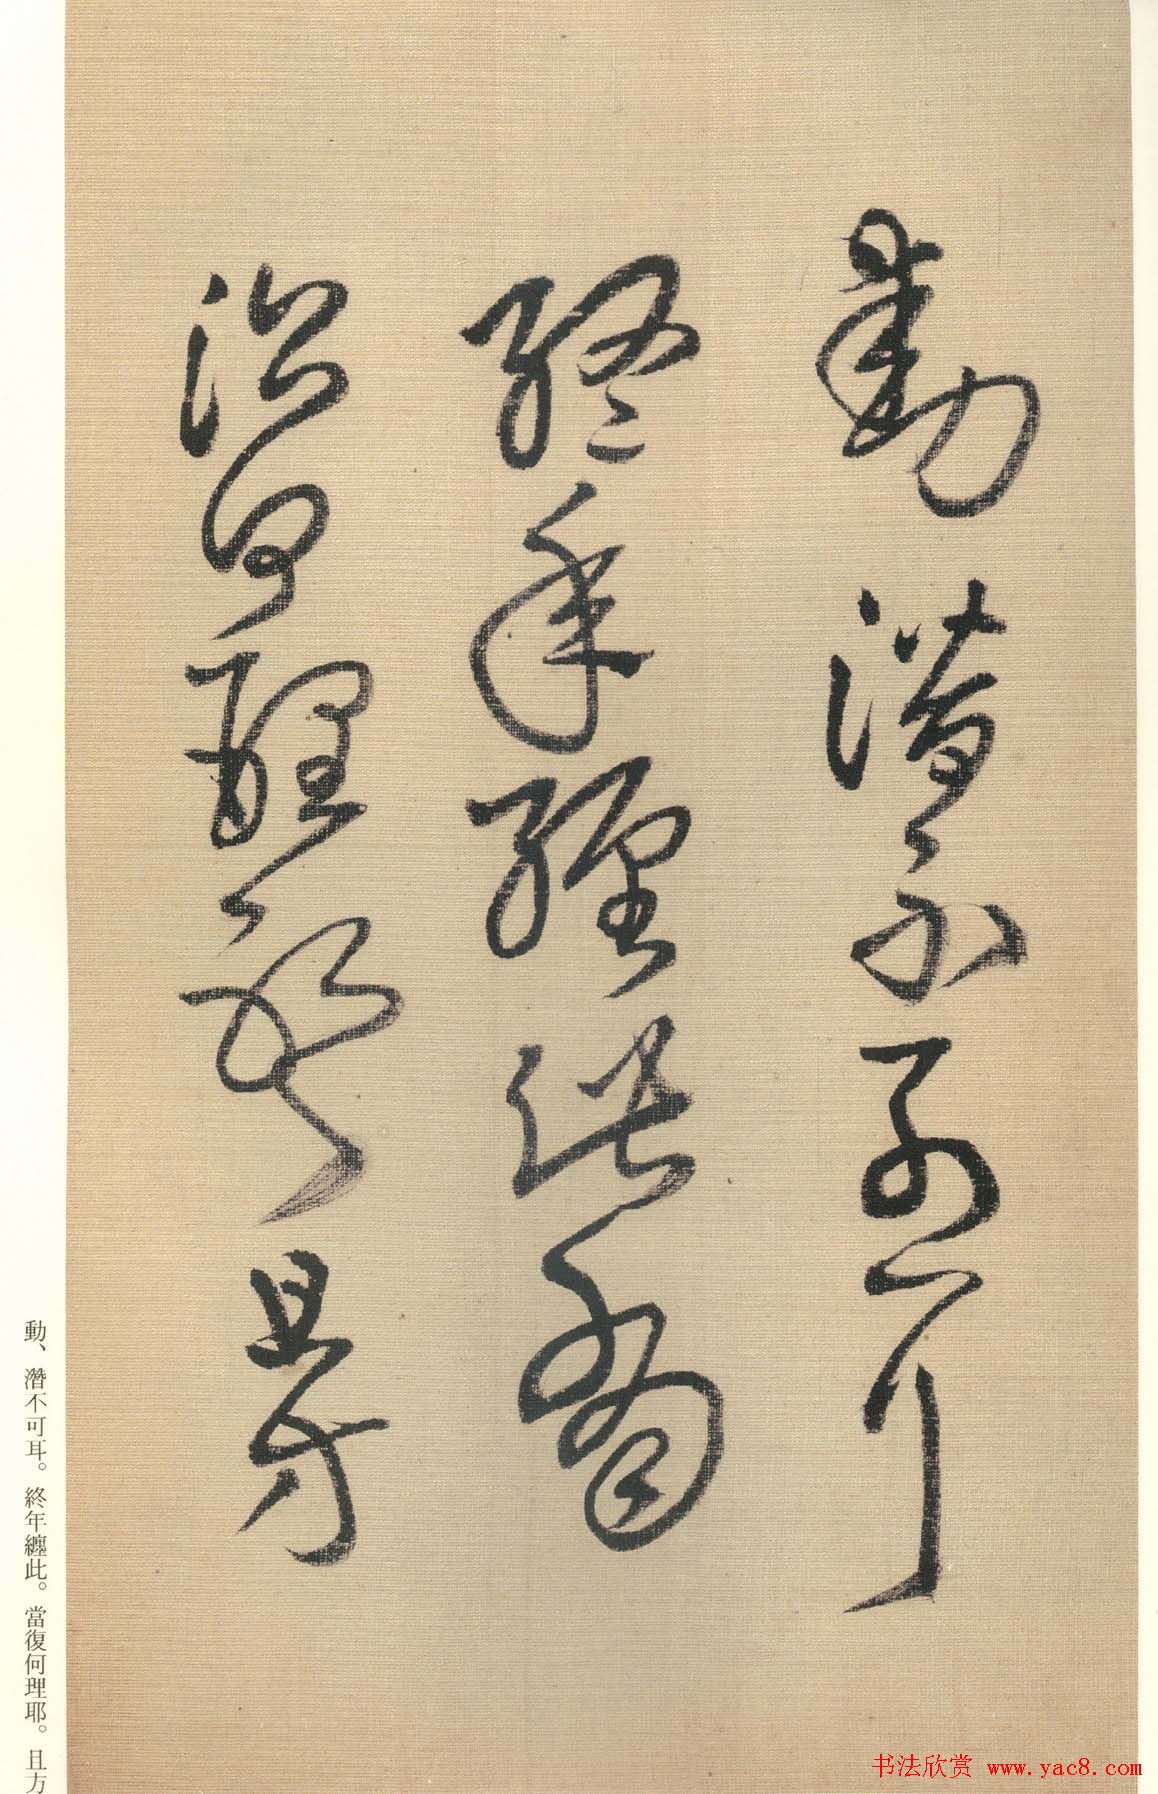 動潛不可耳
終年纏此當
復何理耶且方
動、潛不可耳。終年纏此。當復何理耶。且方
书法欣赏 www.yac8.com